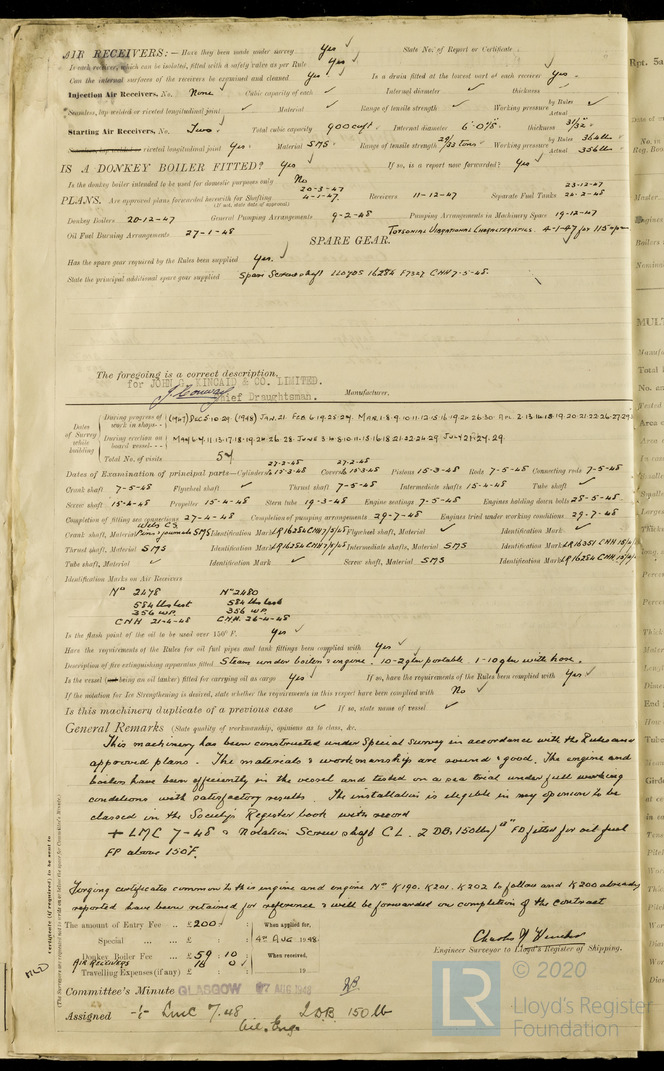 AIR RECEIVERS:— Have they been made under survey Yes ✓ State No. of Report or Certificate
Is each receiver, which can be isolated, fitted with a safety valve as per Rule Yes ✓
Can the internal surfaces of the receivers be examined and cleaned Yes ✓ Is a drain fitted at the lowest part of each receiver Yes ✓
Injection Air Receivers, No. None ✓ Cubic capacity of each ✓ Internal diameter ✓ thickness
Seamless, lap welded or riveted longitudinal joint ✓ Material ✓ Range of tensile strength ✓ Working pressure by Rules ✓ Actual
Starting Air Receivers, No. Two Total cubic capacity 900 cuft Internal diameter 6'-0⅞" thickness 31/32"
Seamless, lap welded or riveted longitudinal joint Yes Material SMS Range of tensile strength 29/33 tons Working pressure by Rules 364 lbs Actual 356 lbs
IS A DONKEY BOILER FITTED? Yes ✓ If so, is a report now forwarded? Yes ✓
Is the donkey boiler intended to be used for domestic purposes only No
PLANS. Are approved plans forwarded herewith for Shafting 20-3-47 4-1-47 Receivers 11-12-47 Separate Fuel Tanks 23-12-47 24-2-48
(If not, state date of approval)
Donkey Boilers 20-12-47 General Pumping Arrangements 9-2-48 Pumping Arrangements in Machinery Space 19-12-47
Oil Fuel Burning Arrangements 27-1-48 Torsional Vibrational Characteristics. 4-1-47 for 115 rpm
SPARE GEAR.
Has the spare gear required by the Rules been supplied Yes. ✓
State the principal additional spare gear supplied Spare Screwshaft LLOYDS 16284 F7327 CNH 7-5-48.
The foregoing is a correct description,
for JOHN G. KINCAID & CO. LIMITED.
Chief Draughtsman. Manufacturer.
Dates of Survey while building
During progress of work in shops - - (1947) DEC 5.10.29. (1948) JAN. 21. FEB 6.19.25.27. MAR 1.8.9.10.11.12.15.16.19.20.26.30
During erection on board vessel - - -
Total No. of visits 54
Dates of Examination of principal parts—Cylinders 27-2-48 to 15-3-48 Covers 27-2-48 15-3-48 Pistons 15-3-48 Rods 7-5-48 Connecting rods 7-5-48
Crank shaft 7-5-48 Flywheel shaft ✓ Thrust shaft 7-5-48 Intermediate shafts 15-4-48 Tube shaft ✓
Screw shaft 15-4-48 Propeller 15-4-48 Stern tube 19-3-48 Engine seatings 7-5-48 Engines holding down bolts 28-5-48
Completion of fitting sea connections 27-4-48 Completion of pumping arrangements 29-7-48 Engines tried under working conditions 29-7-48
Crank shaft, Material Webs CS Pins & journals SMS Identification Mark LR 16284 CNH 7/5/48 Flywheel shaft, Material ✓ Identification Mark ✓
Thrust shaft, Material SMS Identification Mark LR 16284 CNH 7/5/48 Intermediate shafts, Material SMS Identification Marks LR 16351 CNH
Tube shaft, Material ✓ Identification Mark ✓ Screw shaft, Material SMS Identification Mark LR 16284 CNH
Identification Marks on Air Receivers
No 2478 No 2480
584 lbs test 584 lbs test
356 WP. 356 WP.
CNH 21-4-48 CNH. 26-4-48
Is the flash point of the oil to be used over 150° F. Yes ✓
Have the requirements of the Rules for oil fuel pipes and tank fittings been complied with Yes ✓
Description of fire extinguishing apparatus fitted Steam under boiler & engine. 10-2 gln portable 1-10 gln with hose.
Is the vessel (not being an oil tanker) fitted for carrying oil as cargo Yes If so, have the requirements of the Rules been complied with Yes ✓
If the notation for Ice Strengthening is desired, state whether the requirements in this respect have been complied with No ✓
Is this machinery duplicate of a previous case ✓ If so, state name of vessel ✓
General Remarks (State quality of workmanship, opinions as to class, &c.
This machinery has been constructed under Special Survey in accordance with the Rules and
approved plans. The materials & workmanship are sound & good. The engine and
boilers have been efficiently in the vessel and tested on a sea trial under full working
conditions with satisfactory results. The installation is eligible in my opinion to be
classed in the Society's Register book with record
+ LMC 7-48 & Notation Screwshaft CL. 2 DB, 150 lbs/□" FD fitted for oil fuel
FP above 150°F.
Forging certificates common to this engine and engine No K190. K201. K202 to follow and K200 already
reported have been retained for reference & will be forwarded on completion of the contract
The amount of Entry Fee .. £ 200 : When applied for,
Special ... ... £ : 4th AUG 1948
Donkey Boiler Fee ... £ 59 : 10 When received,
AIR RECEIVERS 18 0
Travelling Expenses (if any) £ : 19
Engineer Surveyor to Lloyd's Register of Shipping.
Committee's Minute GLASGOW 17 AUG 1948
Assigned + LMC 7.48 2 DB 150 lb
Oil Eng
© 2020
LR
Lloyd's Register
Foundation
Rpt. 5a